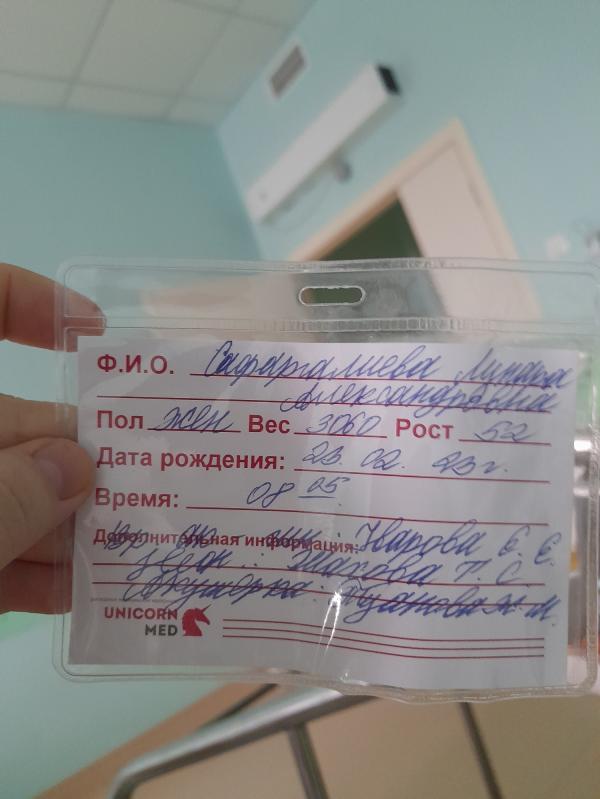 Ф.И.О. Сафаргалиева
Александровна
Пол жен Вес 3060 Рост 52
Дата рождения: 23. 02. 23 г.
Время: 08 05
Дополнительная информация: Уварова Е. Е.
Махова Т. С.
Акушерка: М.
UNICORN
MED